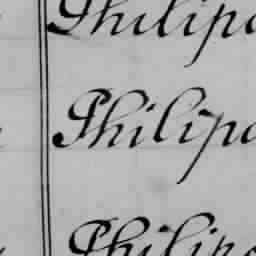 Philipa
Philipa
Philipa